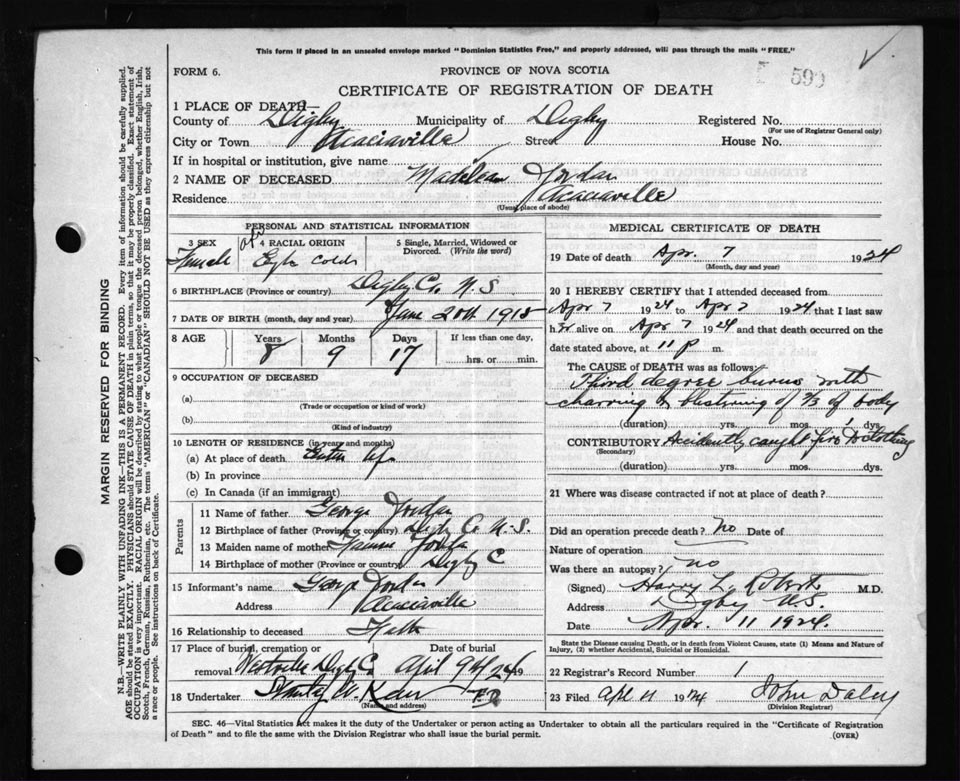 This form if placed in an unsealed envelope marked "Dominion Statistics Free," and properly addressed, will pass through the mails "FREE."
FORM 6.
PROVINCE OF NOVA SCOTIA
599
CERTIFICATE OF REGISTRATION OF DEATH
1 PLACE OF DEATH—
County of Digby Municipality of Digby Registered No.
(For use of Registrar General only)
City or Town Acaciaville Street House No.
If in hospital or institution, give name
2 NAME OF DECEASED Madelean Jordan
Residence Acaciaville
(Usual place of abode)
PERSONAL AND STATISTICAL INFORMATION
3 SEX 4 RACIAL ORIGIN 5 Single, Married, Widowed or Divorced. (Write the word)
Female
6 BIRTHPLACE (Province or country) Digby Co. N.S
7 DATE OF BIRTH (month, day and year) June 20th 1915
8 AGE Years Months Days If less than one day,
8 9 17 hrs. or min.
9 OCCUPATION OF DECEASED
(a)
(Trade or occupation or kind of work)
(b)
(Kind of industry)
10 LENGTH OF RESIDENCE (in years and months)
(a) At place of death
(b) In province
(c) In Canada (if an immigrant)
Parents
11 Name of father George Jordan
12 Birthplace of father (Province or country) Digby Co N.S.
13 Maiden name of mother
14 Birthplace of mother (Province or country) Digby C
15 Informant's name George Jordan
Address Acaciaville
16 Relationship to deceased Father
17 Place of burial, cremation or removal Date of burial
Westville Digby C. April 9th 24 19
18 Undertaker
(Name and address)
MEDICAL CERTIFICATE OF DEATH
19 Date of death Apr. 7 1924
(Month, day and year)
20 I HEREBY CERTIFY that I attended deceased from
Apr 7 1924 to Apr 7 1924 that I last saw
her alive on Apr 7 1924 and that death occurred on
date stated above, at 11 p m.
The CAUSE of DEATH was as follows:
Third degree burns with
charring & blistering of 2/3 of body
(duration) yrs. mos. 1 dys.
CONTRIBUTORY Accidently caught fire to clothing
(Secondary)
(duration) yrs. mos. dys.
21 Where was disease contracted if not at place of death?
Did an operation precede death? no Date of
Nature of operation
Was there an autopsy? no
(Signed) Harry L. Roberts M.D.
Address Digby N.S.
Date Apr. 11 1924.
State the Disease causing Death, or in death from Violent Causes, state (1) Means and Nature of Injury, (2) whether Accidental, Suicidal or Homicidal.
22 Registrar's Record No. 1
23 Filed Apl 11 1924 John Daley
(Division Registrar)
SEC. 46—Vital Statistics Act makes it the duty of the Undertaker or person acting as Undertaker to obtain all the particulars required in the "Certificate of Registration
of Death" and to file the same with the Division Registrar who shall issue the burial permit.
(OVER)
MARGIN RESERVED FOR BINDING
N.B.—WRITE PLAINLY WITH UNFADING INK—THIS IS A PERMANENT RECORD. Every item of information should be carefully supplied.
AGE should be stated EXACTLY. PHYSICIANS should STATE CAUSE OF DEATH in plain terms, so that it may be properly classified. Exact statement of
OCCUPATION is very important. RACIAL ORIGIN will be described by stating to what people or tongue the deceased person belonged, whether English, Irish,
Scotch, French, German, Russian, Ruthenian, etc. The terms "AMERICAN" or "CANADIAN" SHOULD NOT BE USED as they express citizenship but not
a race or people. See instructions on back of Certificate.